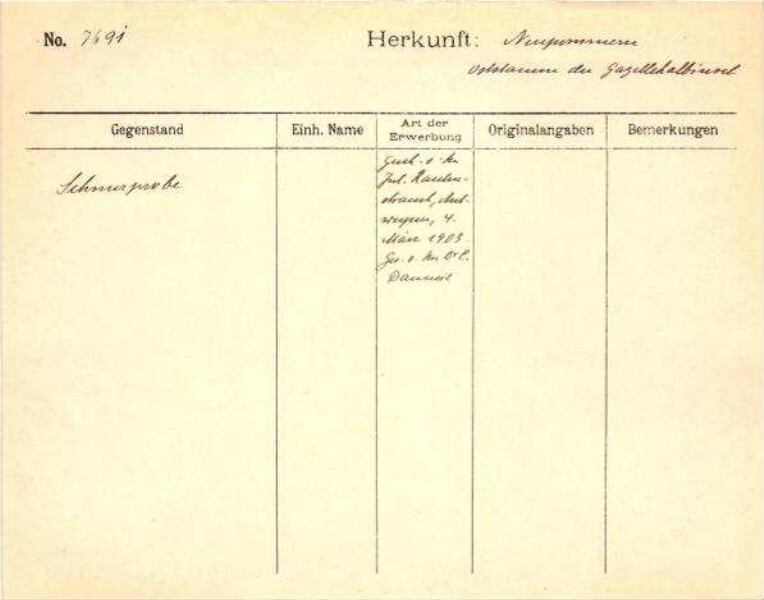 No. 7691
Herkunft: Neupommern
Oststamm der Gazellehalbinsel
Gegenstand
Einh. Name
Art der Erwerbung
Originalangaben
Bemerkungen
Schnurprobe
Gesch. v. Hn
Jul. Rauten-
strauch, Ant-
werpen, 4.
März 1903.
Ges. v. Hn Dr C.
Danneil